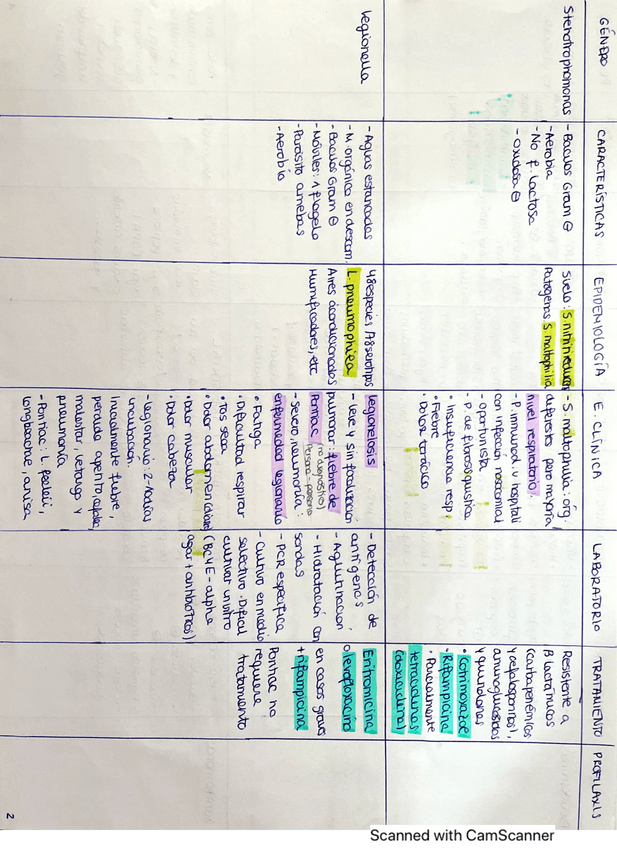 GÉNERO
CARACTERÍSTICAS
EPIDEMIOLOGÍA
E. CLÍNICA
LABORATORIO
TRATAMIENTO
PROFILAXIS
Stenotrophomonas
- Bacilos Gram ⊖
- Aerobia
- No f. lactosa
- Oxidasa ⊖
Suelo: S.
Patógenas S. maltophilia
- S. maltophilia: org.
diferentes pero mayoría
nivel respiratorio.
- P. inmunod. u hospitali
con infección nosocomial
- oportunista
- P. de fibrosis quística
• Insuficiencia resp.
• Fiebre
• Dolor torácico
Resistente a
β lactámicos
(carbapenémicos
y cefalosporinas),
aminoglucósidos
y quinolonas
• Cotrimoxazol
- Rifampicina
• Parcialmente
tetraciclinas
(doxiciclina)
Legionella
- Aguas estancadas
- M. orgánica en descom.
- Bacilos Gram ⊖
- Móviles: 1 flagelo
- Parásito amebas
- Aerobia
48 especies / 18 serotipos
L. pneumophila
Aires acondicionados
Humificadores, etc
Legionelosis
- Leve y sin
pulmonar: fiebre de
Pontiac (no diagnóstico)
Persona-persona
- Severo, neumonía:
enfermedad legionario
• Fatiga
• Dificultad respirar
• Tos seca
• Dolor abdomen
• Dolor muscular
• Dolor cabeza
- Legionario: 2-10 días
incubación.
Inicialmente fiebre,
pérdida apetito, cefalea,
malestar, letargo y
neumonía
- Pontiac: L. feeleii,
longbeachae, anisa
- Detección de
antígenos
- Aglutinación
- Hidratación con
sondas
- PCR específica
- Cultivo en medio
selectivo. Difícil
cultivar in vitro
(BCYE-alpha
agar + antibióticos)
Eritromicina
o levofloxacino
en casos graves
+ rifampicina
Pontiac no
requiere
tratamiento
2
Scanned with CamScanner